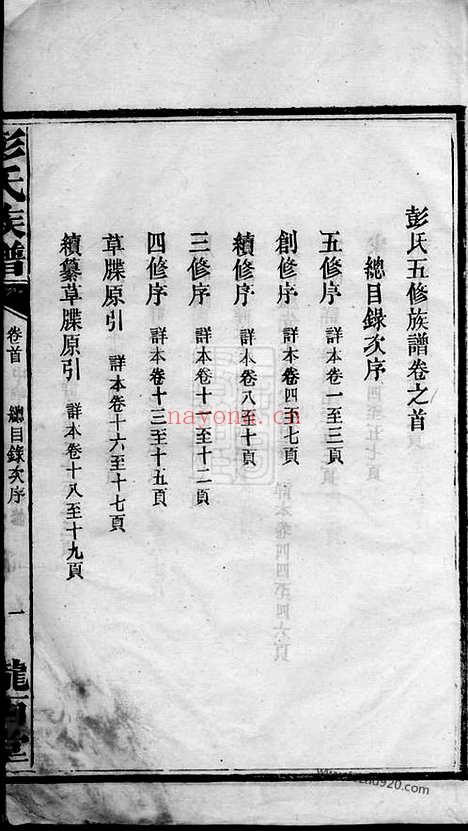 彭氏五修族譜卷之首
總目錄次序
五修序 詳本卷一至三頁
創修序 詳本卷四至七頁
續修序 詳本卷八至十頁
三修序 詳本卷十一至十二頁
四修序 詳本卷十三至十五頁
草牒原引 詳本卷十六至十七頁
續纂草牒原引 詳本卷十八至十九頁
彭氏族譜 卷首 總目錄次序 一
nayong.cn